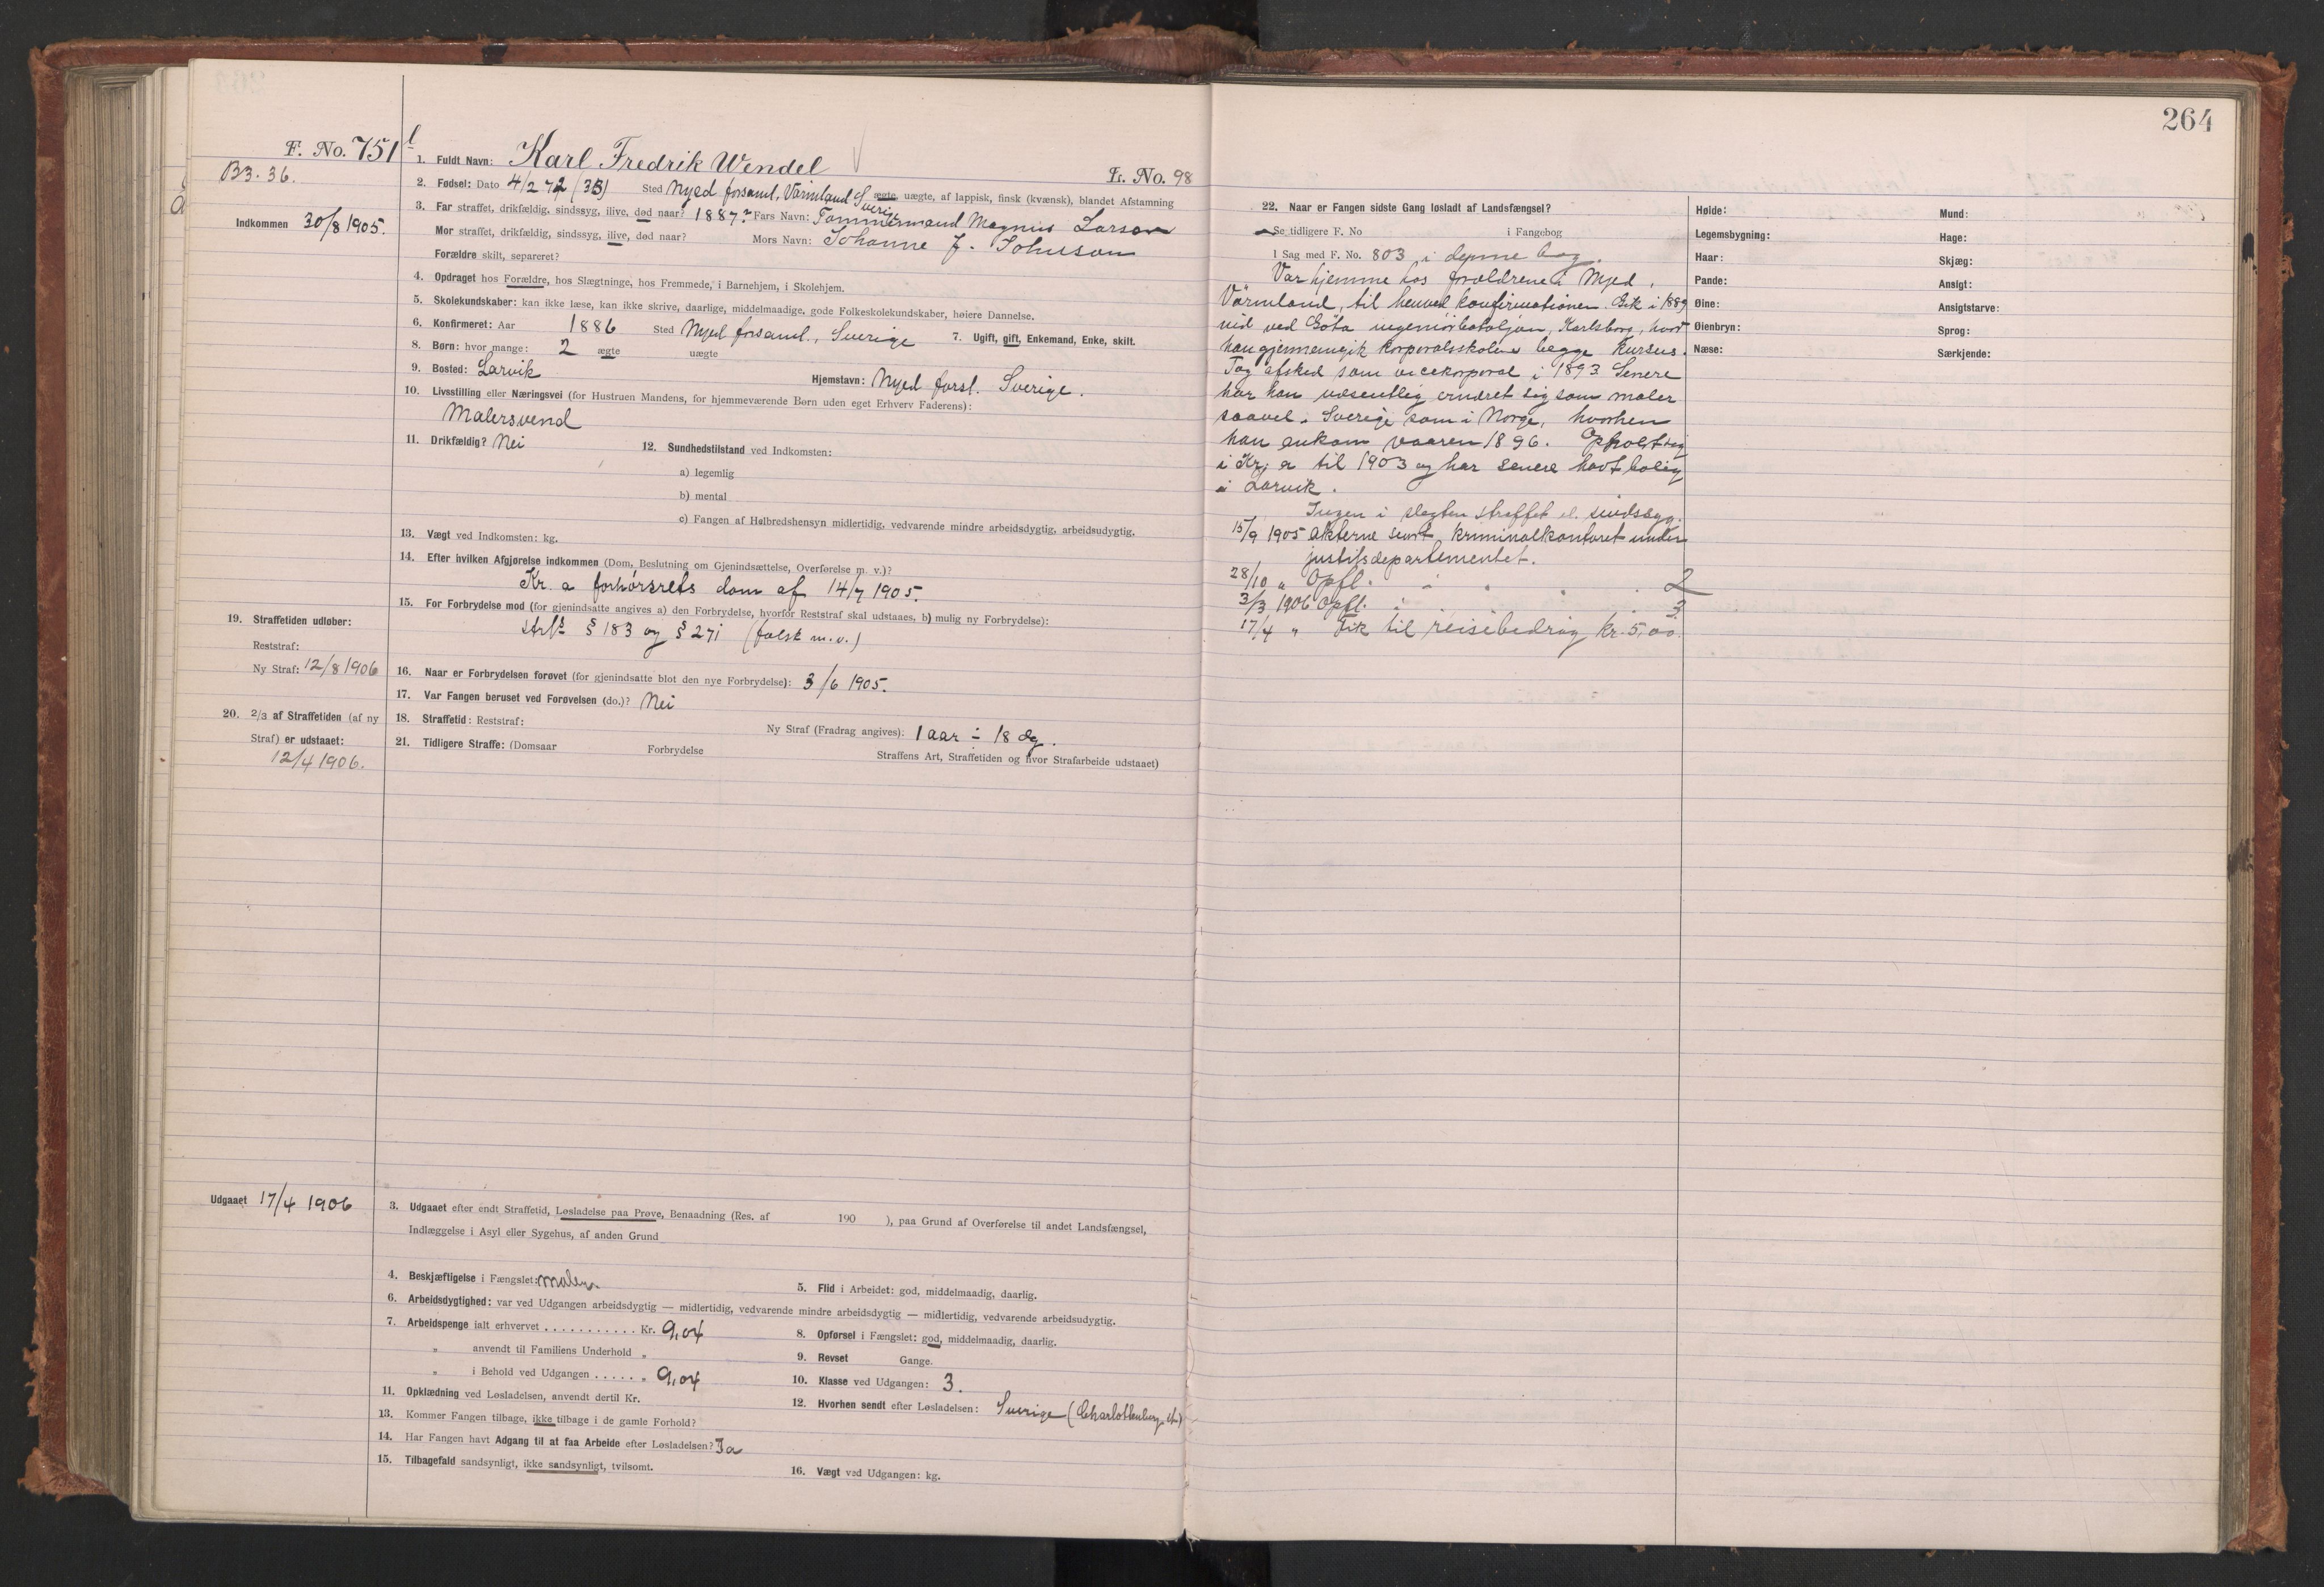 264
F. No. 751
B3. 36.
Indkommen 30/8 1905.
1. Fuldt Navn: Karl Fredrik Wendel
L. No. 98
2. Fødsel: Dato 4/2 72 (33) Sted Nyed forsaml. Värmland Sverige ægte, uægte, af lappisk, finsk (kvænsk), blandet Afstamning
3. Far straffet, drikfældig, sindssyg, ilive, død naar? 1887? Fars Navn: Tømmermand Magnus Larson
Mor straffet, drikfældig, sindssyg, ilive, død naar? Mors Navn: Johanne J. Johnson
Forældre skilt, separeret?
4. Opdraget hos Forældre, hos Slægtninge, hos Fremmede, i Barnehjem, i Skolehjem.
5. Skolekundskaber: kan ikke læse, kan ikke skrive, daarlige, middelmaadige, gode Folkeskolekundskaber, høiere Dannelse.
6. Konfirmeret: Aar 1886 Sted Nyed forsaml., Sverige 7. Ugift, gift, Enkemand, Enke, skilt.
8. Børn: hvor mange: 2 ægte uægte
9. Bosted: Larvik Hjemstavn: Nyed forsl. Sverige.
10. Livsstilling eller Næringsvei (for Hustruen Mandens, for hjemmeværende Børn uden eget Erhverv Faderens):
Malersvend
11. Drikfældig? Nei 12. Sundhedstilstand ved Indkomsten:
a) legemlig
b) mental
c) Fangen af Helbredshensyn midlertidig, vedvarende mindre arbeidsdygtig, arbeidsudygtig.
13. Vægt ved Indkomsten: kg.
14. Efter hvilken Afgjørelse indkommen (Dom, Beslutning om Gjenindsættelse, Overførelse m. v.)?
Kr. a forhørsrets dom af 14/7 1905.
15. For Forbrydelse mod (for gjenindsatte angives a) den Forbrydelse, hvorfor Reststraf skal udstaaes, b) mulig ny Forbrydelse):
§ 183 og § 271 (falsk m.v.)
19. Straffetiden udløber:
Reststraf:
Ny Straf: 12/8 1906
16. Naar er Forbrydelsen forøvet (for gjenindsatte blot den nye Forbrydelse): 3/6 1905.
17. Var Fangen beruset ved Forøvelsen (do.)? Nei
20. 2/3 af Straffetiden (af ny
Straf) er udstaaet:
12/4 1906.
18. Straffetid: Reststraf: Ny Straf (Fradrag angives): 1 aar ÷ 18 dg.
21. Tidligere Straffe: (Domsaar Forbrydelse Straffens Art, Straffetiden og hvor Strafarbeide udstaaet)
Udgaaet 17/4 1906
3. Udgaaet efter endt Straffetid, Løsladelse paa Prøve, Benaadning (Res. af 190 ), paa Grund af Overførelse til andet Landsfængsel,
Indlæggelse i Asyl eller Sygehus, af anden Grund
4. Beskjæftigelse i Fængslet: maler. 5. Flid i Arbeidet: god, middelmaadig, daarlig.
6. Arbeidsdygtighed: var ved Udgangen arbeidsdygtig — midlertidig, vedvarende mindre arbeidsdygtig — midlertidig, vedvarende arbeidsudygtig.
7. Arbeidspenge ialt erhvervet . . . . . . . . . . . Kr. 9,04 8. Opførsel i Fængslet: god, middelmaadig, daarlig.
„ anvendt til Familiens Underhold „ 9. Revset Gange.
„ i Behold ved Udgangen . . . . . „ 9,04 10. Klasse ved Udgangen: 3.
11. Opklædning ved Løsladelsen, anvendt dertil Kr. 12. Hvorhen sendt efter Løsladelsen: Sverige (Charlottenberg st.)
13. Kommer Fangen tilbage, ikke tilbage i de gamle Forhold?
14. Har Fangen havt Adgang til at faa Arbeide efter Løsladelsen? Ja
15. Tilbagefald sandsynligt, ikke sandsynligt, tvilsomt. 16. Vægt ved Udgangen: kg.
22. Naar er Fangen sidste Gang løsladt af Landsfængsel?
Se tidligere F. No i Fangebog
I Sag med F. No. 803 i denne bog.
Var hjemme hos forældrene i Nyed,
Värmland, til henved konfirmationen. Gik i 1889
ind ved Göta ingeniörbataljon, Karlsborg, hvor
han gjennemgik korporalsskolens begge kursus.
Tog afsked som vicekorporal i 1893. Senere
har han væsentlig ernæret sig som maler
saavel i Sverige som i Norge, hvorhen
han ankom vaaren 1896. Opholdt sig
i Kr. a til 1903 og har senere havt bolig
i Larvik.
Ingen i slegten straffet el. sindssyg.
15/9 1905 Akterne sendt kriminalkontoret under
justitsdepartementet.
28/10 „ Opfl. 2
3/3 1906 Opfl. 3
17/4 „ Fik til reisebedrag kr. 5,00.
Høide:
Legemsbygning:
Haar:
Pande:
Øine:
Øienbryn:
Næse:
Mund:
Hage:
Skjæg:
Ansigt:
Ansigtstarve:
Sprog:
Særkjende: